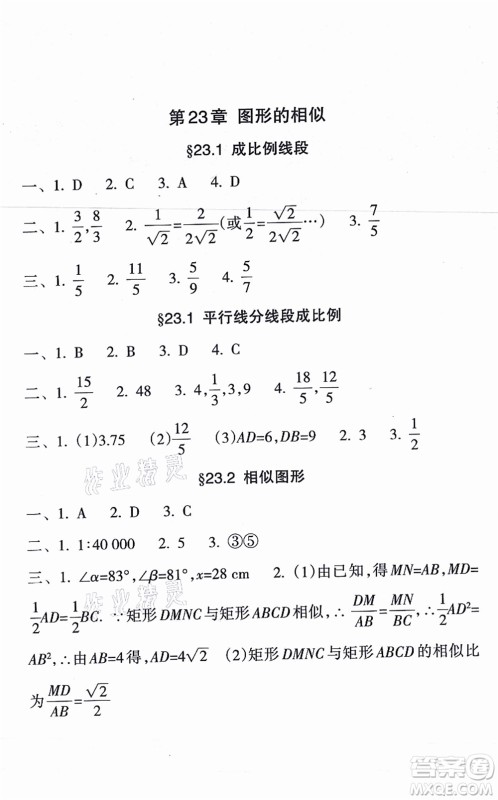 第23章 图形的相似
§23.1 成比例线段
一、1. D 2. C 3. A 4. D
二、1. 3/2, 8/3 2. 1/√2=2/2√2(或√2/2=√2/2√2…) 3. 7/5
三、1. 1/5 2. 11/5 3. 5/9 4. 5/7
§23.1 平行线分线段成比例
一、1. B 2. B 3. D 4. C
二、1. 15/2 2. 48 3. 4,1/3,3,9 4. 18/5,12/5
三、1. (1)3.75 (2)12/5 (3)AD=6,DB=9 2. 3 3. 1/2
§23.2 相似图形
一、1. A 2. D 3. C
二、1. 1∶40 000 2. 5 3. ③⑤
三、1. ∠α=83°,∠β=81°,x=28 cm 2. (1)由已知,得MN=AB,MD=
1/2AD=1/2BC. ∵矩形DMNC与矩形ABCD相似,∴DM/AB=MN/BC,∴1/2AD²=
AB²,∴由AB=4得,AD=4√2 (2)矩形DMNC与矩形ABCD的相似比
为MD/AB=√2/2
作业精灵
作业精灵
答案圈
MXQE.COM